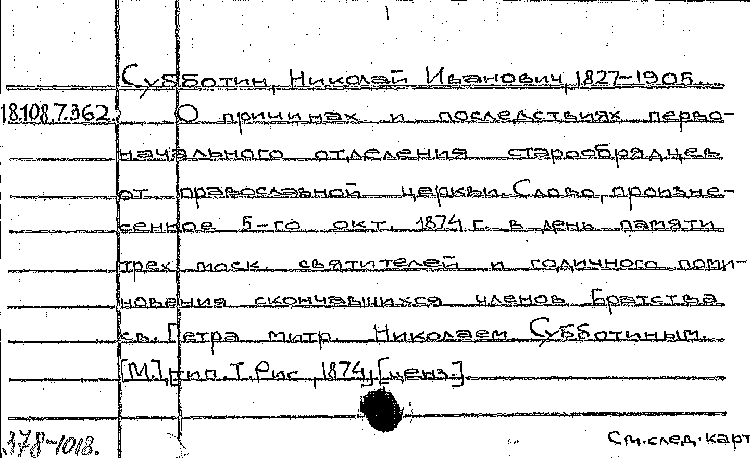 Субботин, Николай Иванович, 1827-1905.
18.108.7.362. О причинах и последствиях перво-
начального отделения старообрядцев
от православной церкви. Слово, произне-
сенное 5-го окт. 1874 г. в день памяти
трех моск святителей и годичного поми-
новения скончавшихся членов Братства
св. Петра митр. Николаем Субботиным.
[М.], тип. Т. Рис, 1874, [ценз.].
378-1018. См. след. карт